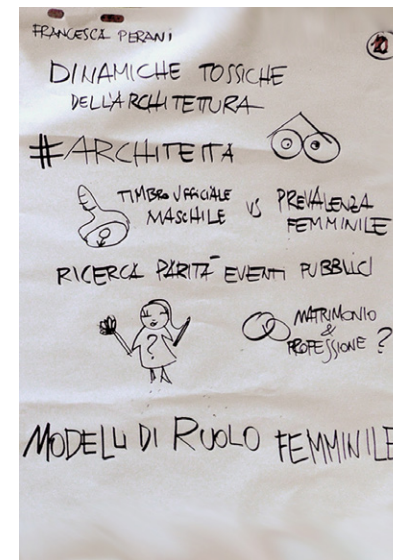 FRANCESCA PERANI
20
DINAMICHE TOSSICHE
DELL'ARCHITETTURA
#ARCHITETTA
TIMBRO UFFICIALE
MASCHILE
VS
PREVALENZA
FEMMINILE
RICERCA PARITÀ EVENTI PUBBLICI
?
MATRIMONIO
&
PROFESSIONE ?
MODELLI DI RUOLO FEMMINILE